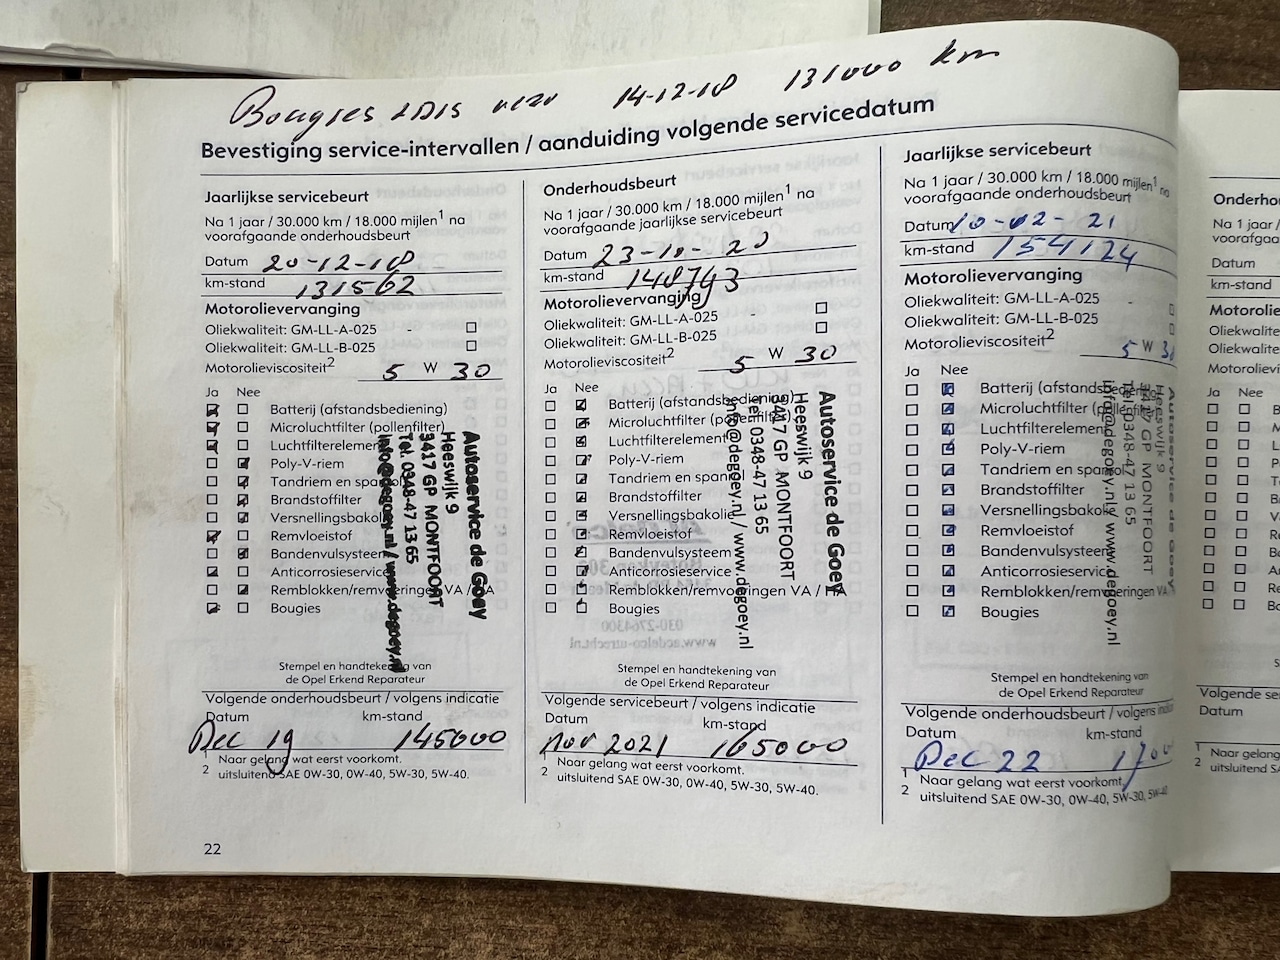 Bougies 14-12-18 131000 km
Bevestiging service-intervallen / aanduiding volgende servicedatum
Jaarlijkse servicebeurt
Na 1 jaar / 30.000 km / 18.000 mijlen¹ na
voorafgaande onderhoudsbeurt
Datum 20-12-18
km-stand 131562
Motorolievervanging
Oliekwaliteit: GM-LL-A-025
Oliekwaliteit: GM-LL-B-025
Motorolieviscositeit² 5 W 30
Ja Nee
Batterij (afstandsbediening)
Microluchtfilter (pollenfilter)
Luchtfilterelement
Poly-V-riem
Tandriem en spanrol
Brandstoffilter
Versnellingsbakolie
Remvloeistof
Bandenvulsysteem
Anticorrosieservice
Remblokken/remvoeringen VA / HA
Bougies
Autoservice de Goey
Heeswijk 9
3417 GP MONTFOORT
Tel. 0348-47 13 65
info@degoey.nl / www.degoey.nl
Stempel en handtekening van
de Opel Erkend Reparateur
Volgende onderhoudsbeurt / volgens indicatie
Datum km-stand
Dec 19 145000
¹ Naar gelang wat eerst voorkomt.
² uitsluitend SAE 0W-30, 0W-40, 5W-30, 5W-40.
22
Onderhoudsbeurt
Na 1 jaar / 30.000 km / 18.000 mijlen¹ na
voorafgaande jaarlijkse servicebeurt
Datum 23-10-20
km-stand 148743
Motorolievervanging
Oliekwaliteit: GM-LL-A-025
Oliekwaliteit: GM-LL-B-025
Motorolieviscositeit² 5 W 30
Ja Nee
Batterij (afstandsbediening)
Microluchtfilter (pollenfilter)
Luchtfilterelement
Poly-V-riem
Tandriem en spanrol
Brandstoffilter
Versnellingsbakolie
Remvloeistof
Bandenvulsysteem
Anticorrosieservice
Remblokken/remvoeringen VA / H
Bougies
Autoservice de Goey
Heeswijk 9
3417 GP MONTFOORT
Tel. 0348-47 13 65
info@degoey.nl / www.degoey.nl
Stempel en handtekening van
de Opel Erkend Reparateur
Volgende servicebeurt / volgens indicatie
Datum km-stand
nov 2021 165000
¹ Naar gelang wat eerst voorkomt.
² uitsluitend SAE 0W-30, 0W-40, 5W-30, 5W-40.
Jaarlijkse servicebeurt
Na 1 jaar / 30.000 km / 18.000 mijlen¹ na
voorafgaande onderhoudsbeurt
Datum 10-02-21
km-stand 154124
Motorolievervanging
Oliekwaliteit: GM-LL-A-025
Oliekwaliteit: GM-LL-B-025
Motorolieviscositeit² 5 W 3
Ja Nee
Batterij (afstandsbediening)
Microluchtfilter (pollenfilter)
Luchtfilterelement
Poly-V-riem
Tandriem en spanrol
Brandstoffilter
Versnellingsbakolie
Remvloeistof
Bandenvulsysteem
Anticorrosieservice
Remblokken/remvoeringen VA
Bougies
Autoservice de Goey
Heeswijk 9
3417 GP MONTFOORT
Tel. 0348-47 13 65
info@degoey.nl / www.degoey.nl
Stempel en handtekening van
de Opel Erkend Reparateur
Volgende onderhoudsbeurt / volgens indic
Datum km-stand
Dec 22 170
¹ Naar gelang wat eerst voorkomt.
² uitsluitend SAE 0W-30, 0W-40, 5W-30, 5W-40
Onderho
Na 1 jaar /
voorafgaa
Datum
km-stand
Motorolie
Oliekwalite
Oliekwalite
Motorolievi
Ja Nee
Volgende se
Datum
¹ Naar gelang
² uitsluitend S